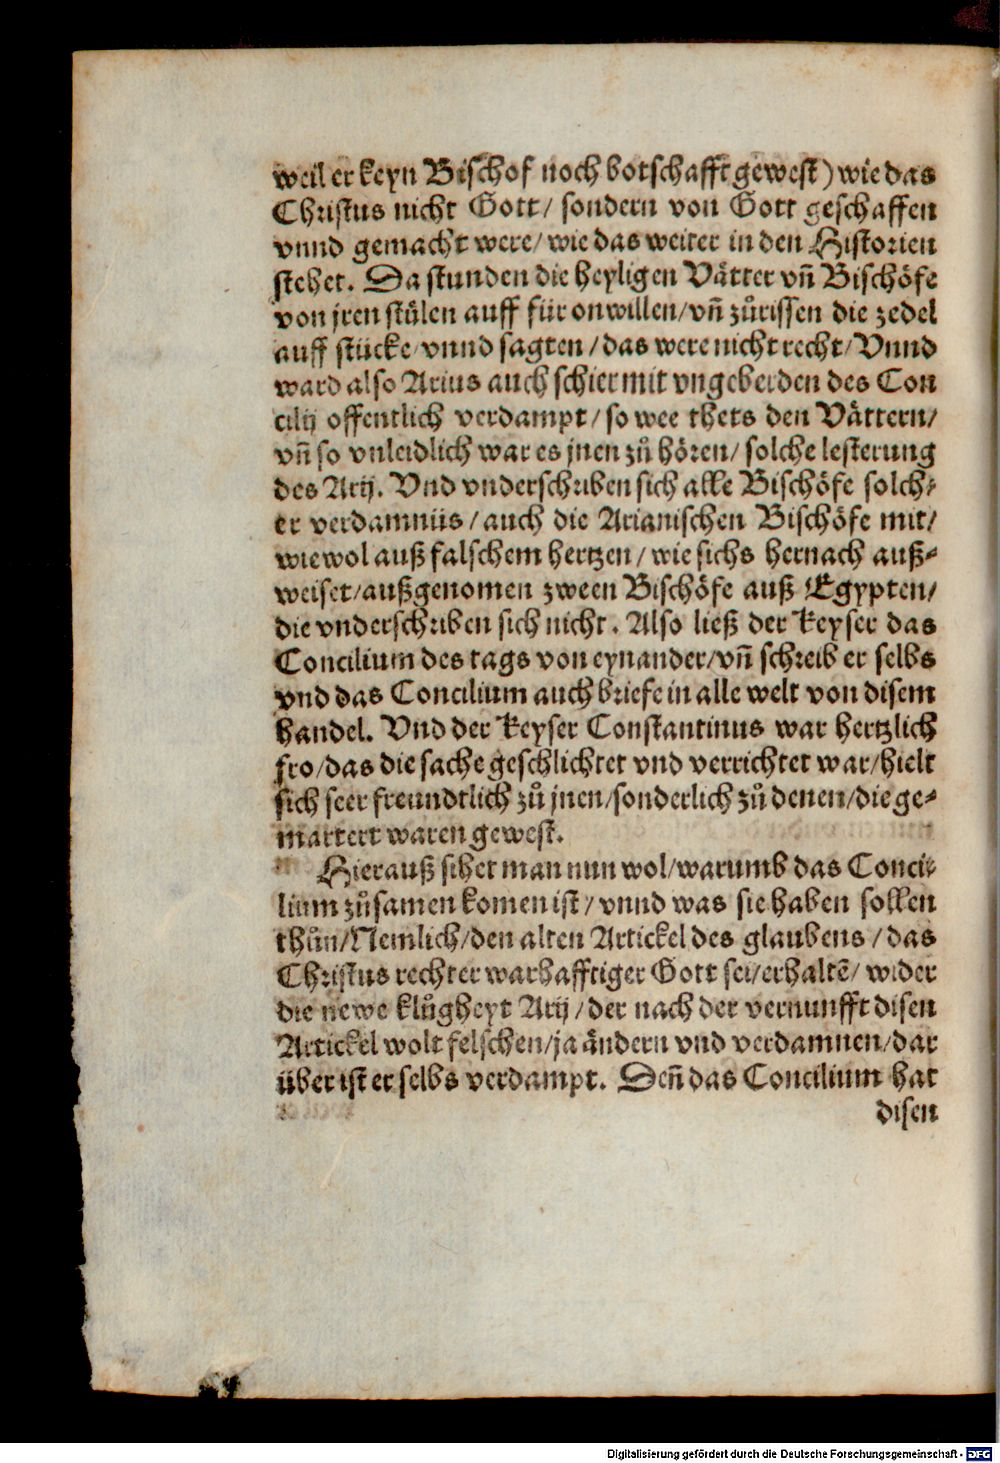 weil er keyn Bischof noch botschafft gewest) wie das
Christus nicht Gott/ sondern von Gott geschaffen
vnnd gemacht were/ wie das weiter in den Historien
stehet. Da stunden die heyligen Vätter vñ Bischöfe
von jren stülen auff für onwillen/ vñ zůrissen die zedel
auff stücke/ vnnd sagten/ das were nicht recht/ Vnnd
ward also Arius auch schier mit vngeberden des Con
cilij offentlich verdampt/ so wee thets den Vättern/
vñ so vnleidlich war es jnen zů hören/ solche lesterung
des Arij. Vnd vnderschriben sich alle Bischöfe solch⸗
er verdamnüs/ auch die Arianischen Bischöfe mit/
wiewol auß falschem hertzen/ wie sichs hernach auß⸗
weiset/ außgenomen zween Bischöfe auß Egypten/
die vnderschriben sich nicht. Also ließ der Keyser das
Concilium des tags von eynander/ vñ schreib er selbs
vnd das Concilium auch briefe in alle welt von disem
handel. Vnd der Keyser Constantinus war hertzlich
fro/ das die sache geschlichtet vnd verrichtet war/ hielt
sich seer freundtlich zů jnen/ sonderlich zů denen/ die ge⸗
martert waren gewest.
Hierauß sihet man nun wol/ warumb das Conci⸗
lium zůsamen komen ist/ vnnd was sie haben sollen
thůn/ Nemlich/ den alten Artickel des glaubens/ das
Christus rechter warhafftiger Gott sei/ erhaltē/ wider
die newe klůgheyt Arij/ der nach der vernunfft disen
Artickel wolt felschen/ ja ändern vnd verdamnen/ dar
über ist er selbs verdampt. Deñ das Concilium hat
disen
Digitalisierung gefördert durch die Deutsche Forschungsgemeinschaft - DFG